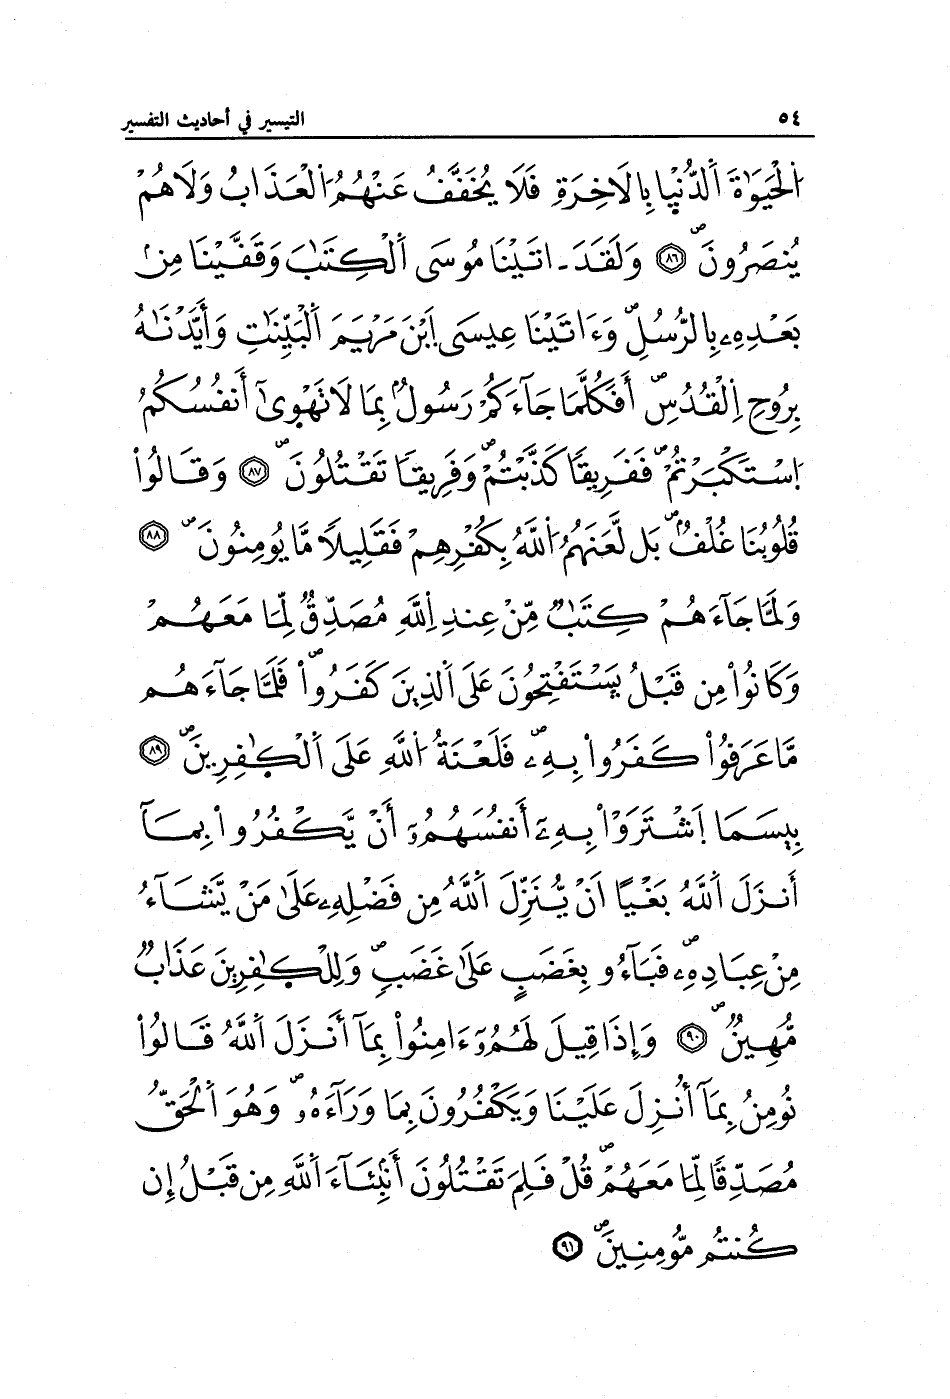 ٥٤ التيسير في أحاديث التفسير
اَ۬لْحَيَوٰةَ اَ۬لدُّنْي۪ا بِالَاخِرَةِ فَلَا يُخَفَّفُ عَنْهُمُ اُ۬لْعَذَابُ وَلَا هُمْ
يُنصَرُونَۖ ٨٦ وَلَقَدَ ـ اتَيْنَا مُوسَي اَ۬لْكِتَٰبَ وَقَفَّيْنَا مِنۢ
بَعْدِهِۦ بِالرُّسُلِۖ وَءَاتَيْنَا عِيسَي اَ۪بْنَ مَرْيَمَ اَ۬لْبَيِّنَٰتِ وَأَيَّدْنَٰهُ
بِرُوحِ اِ۬لْقُدُسِۖ أَفَكُلَّمَا جَآءَكُمْ رَسُولُۢ بِمَا لَا تَهْو۪ىٰٓ أَنفُسُكُمُ
اُ۪سْتَكْبَرْتُمْۖ فَفَرِيقاً كَذَّبْتُمْۖ وَفَرِيقاً تَقْتُلُونَۖ ٨٧ وَقَالُواْ
قُلُوبُنَا غُلْفٌۢۖ بَل لَّعَنَهُمُ اُ۬للَّهُ بِكُفْرِهِمْ فَقَلِيلاً مَّا يُومِنُونَۖ ٨٨
وَلَمَّا جَآءَهُمْ كِتَٰبٌ مِّنْ عِندِ اِ۬للَّهِ مُصَدِّقٌ لِّمَا مَعَهُمْ
وَكَانُواْ مِن قَبْلُ يَسْتَفْتِحُونَ عَلَى اَ۬لذِينَ كَفَرُواْۖ فَلَمَّا جَآءَهُم
مَّا عَرَفُواْ كَفَرُواْ بِهِۦۖ فَلَعْنَةُ اُ۬للَّهِ عَلَى اَ۬لْكٰ۪فِرِينَۖ ٨٩
بِيسَمَا اَ۪شْتَرَوْاْ بِهِۦٓ أَنفُسَهُمُۥٓ أَنْ يَّكْفُرُواْ بِمَآ
أَنزَلَ اَ۬للَّهُ بَغْياً اَنْ يُّنَزِّلَ اَ۬للَّهُ مِن فَضْلِهِۦ عَلَىٰ مَنْ يَّشَآءُ
مِنْ عِبَادِهِۦۖ فَبَآءُو بِغَضَبٍ عَلَىٰ غَضَبٍۖ وَلِلْكٰ۪فِرِينَ عَذَابٌ
مُّهِينٌۖ ٩٠ وَإِذَا قِيلَ لَهُمُۥٓ ءَامِنُواْ بِمَآ أَنزَلَ اَ۬للَّهُ قَالُواْ
نُومِنُ بِمَآ أُنزِلَ عَلَيْنَا وَيَكْفُرُونَ بِمَا وَرَآءَهُۥۖ وَهُوَ اَ۬لْحَقُّ
مُصَدِّقاً لِّمَا مَعَهُمْۖ قُلْ فَلِمَ تَقْتُلُونَ أَنۢبِئَآءَ اَ۬للَّهِ مِن قَبْلُ إِن
كُنتُم مُّومِنِينَۖ ٩١